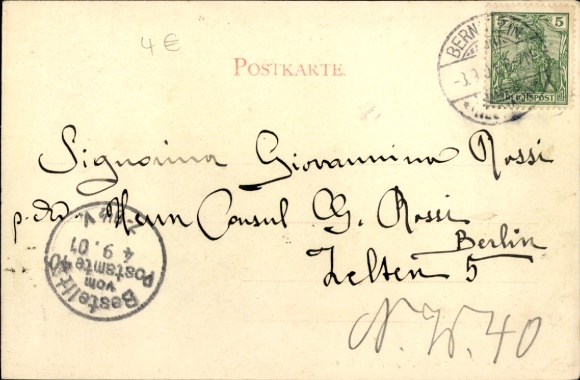 4 €
POSTKARTE.
5
REICHSPOST
BERN
Signorina Giovannina Rossi
p. Adr. Herrn Consul G. Rossi
Berlin
Zelten 5
N.W. 40
Bestellt
vom
Postamte 40
4 9. 01